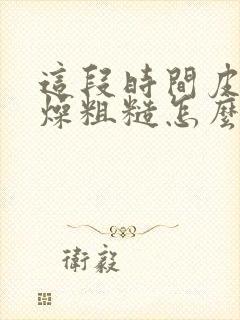 這段時間皮
燥粗糙怎麼
衛毅